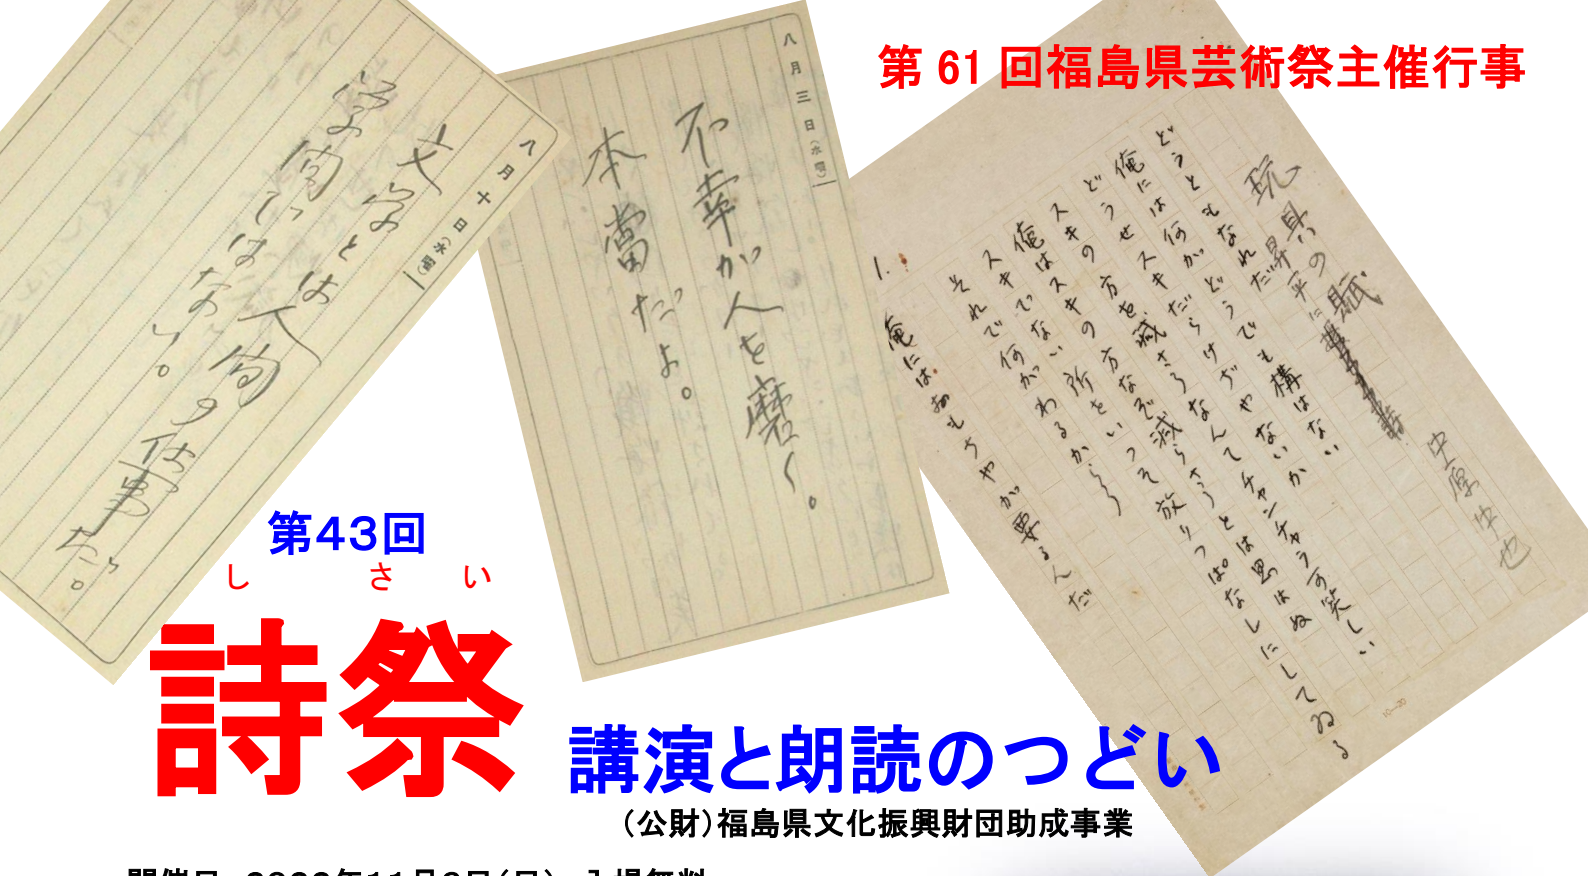 第 61 回福島県芸術祭主催行事
八月十日(水曜)
文学とは人間の仕事だ。
学問ではない。
八月三日(水曜)
不幸が人を磨く。
本當だよ。
玩具の賦
昇平に
中原中也
どうともなれだ
俺には何がどうでも構はない
どうせスキだらけぢやないか
スキの方を減さうなんてチャンチャラ可笑しい
俺はスキの方なぞ減らさうとは思はぬ
スキでない所をいつそ放りつぱなしにしてゐる
それで何がわるからう
1.
俺にはおもちやが要るんだ
第43回
しさい
詩祭
講演と朗読のつどい
(公財)福島県文化振興財団助成事業